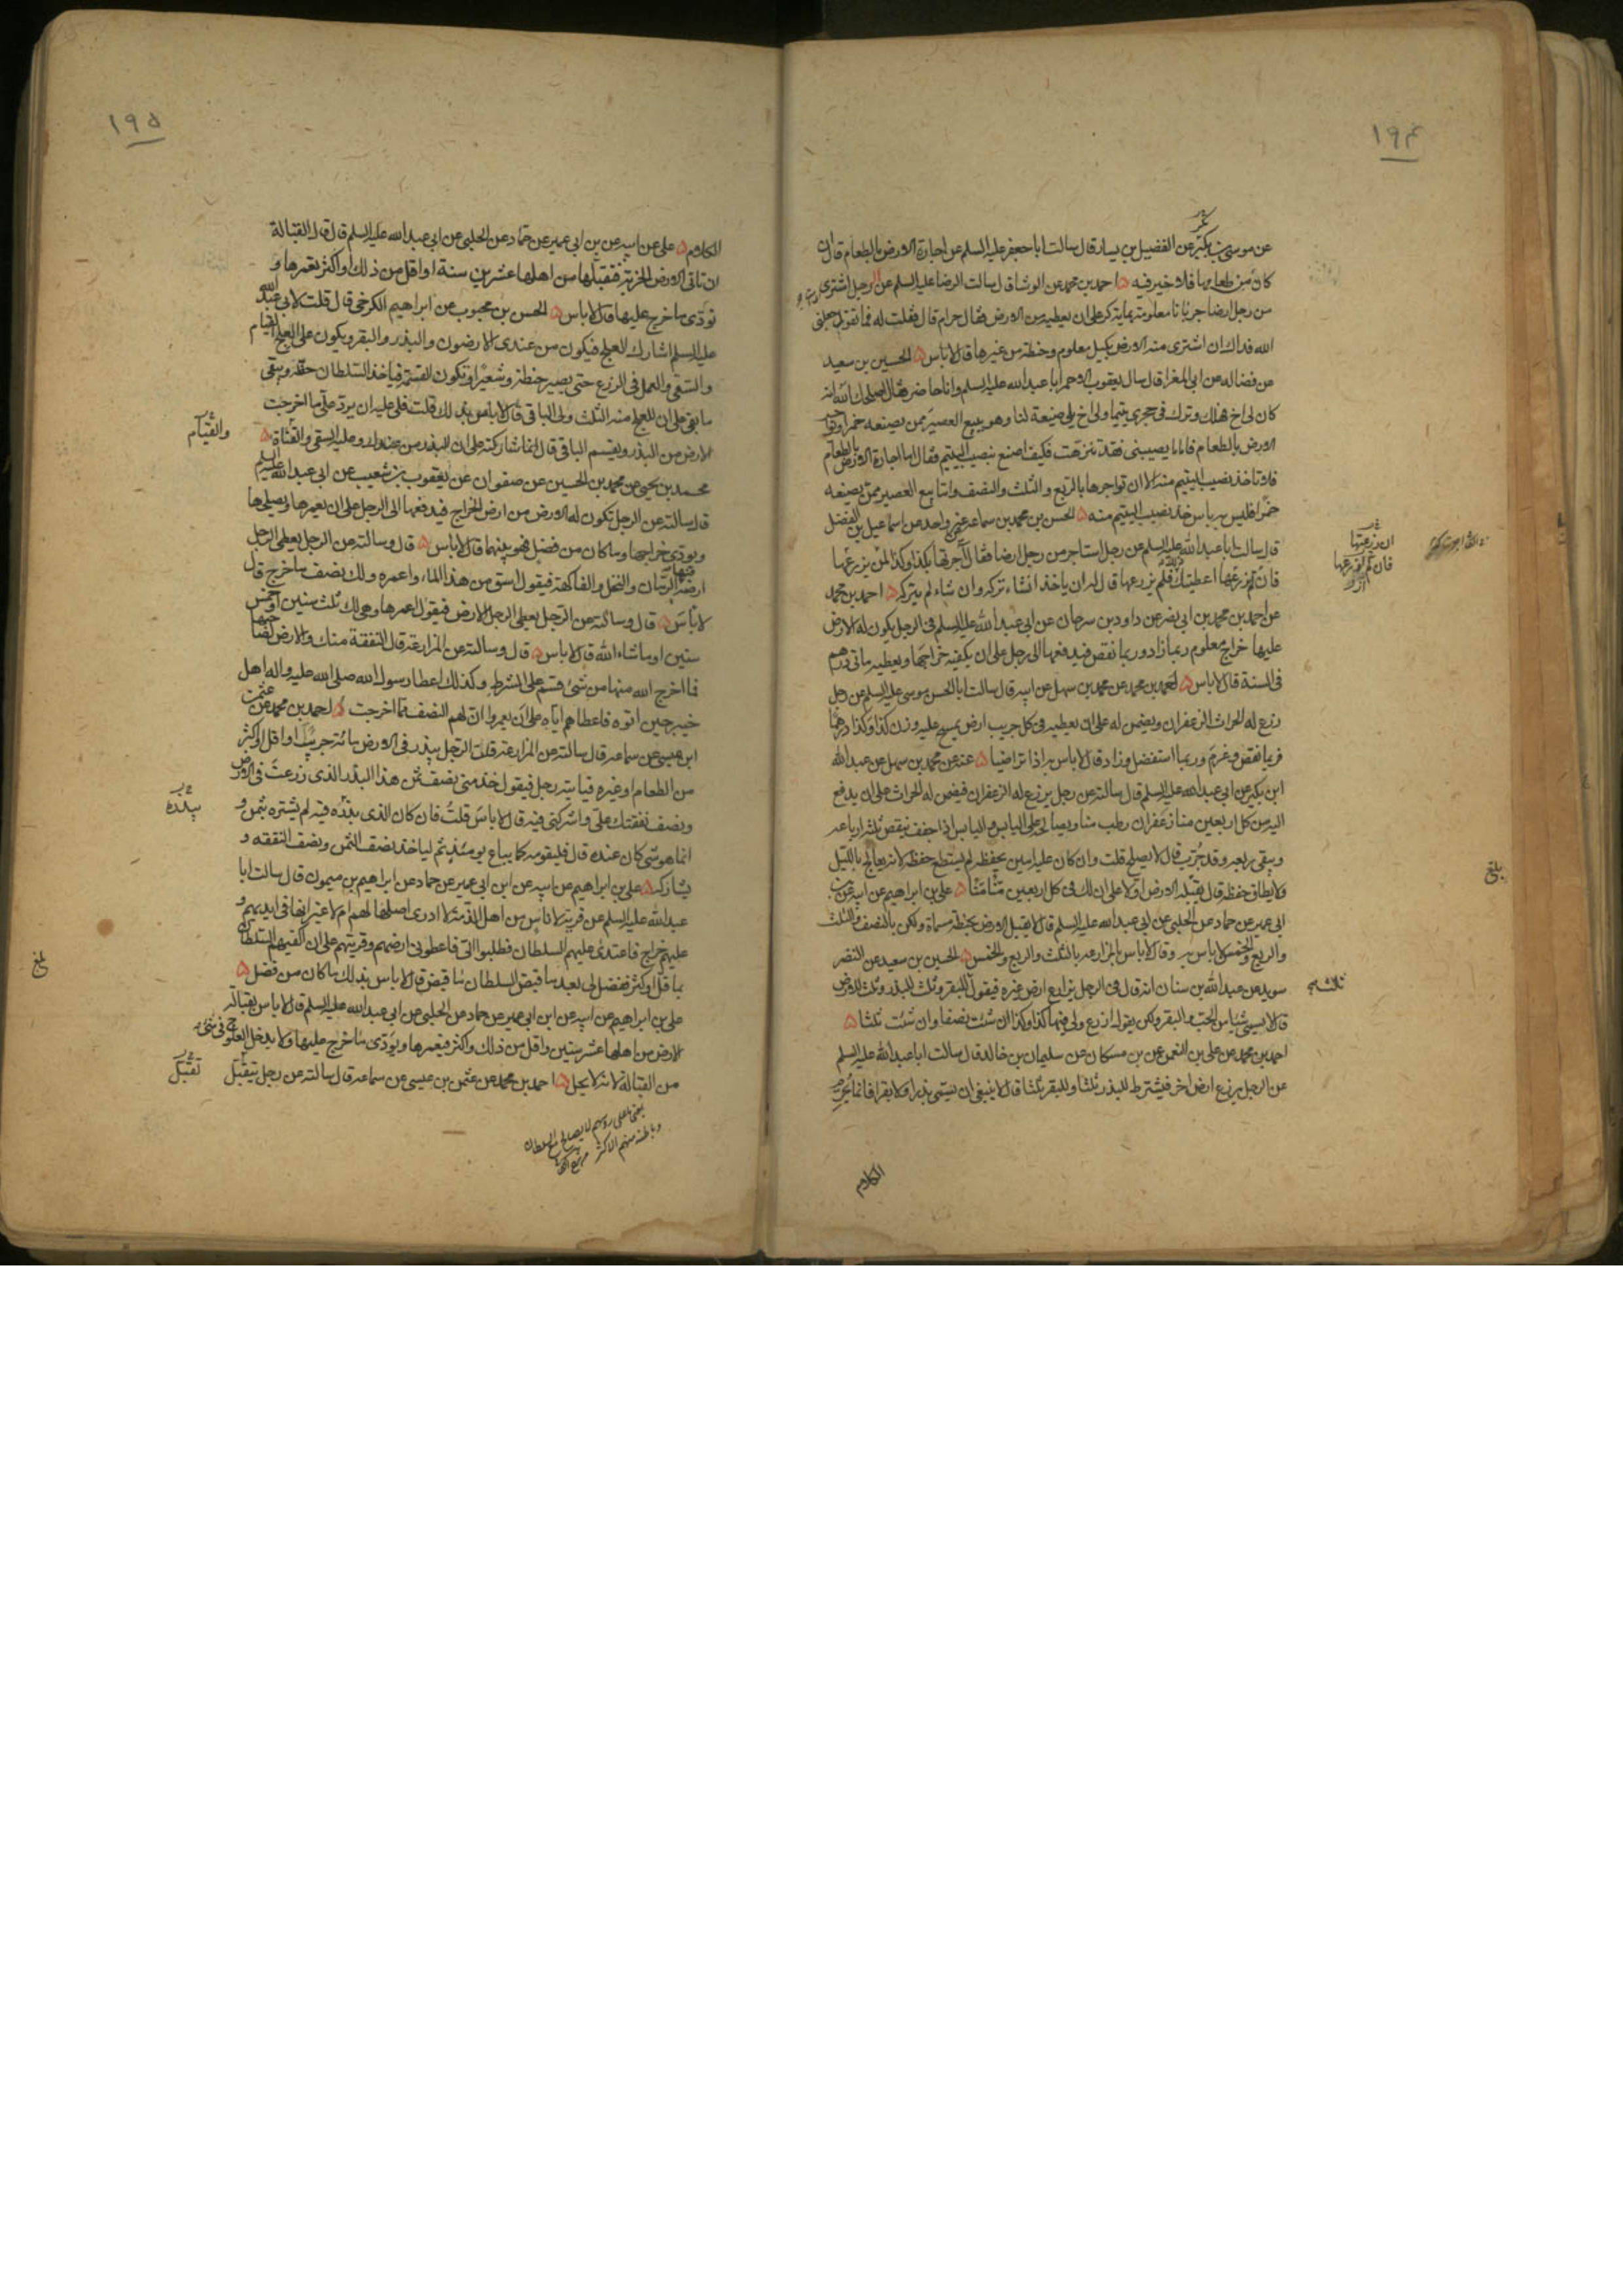 ١٩٤
عن موسى بن بكر عن الفضيل بن يسار قال سالت ابا جعفر عليه السلم عن اجارة الارض بالطعام قال ان
كان من طعامها فلا خير فيه احمد بن محمد عن الوشا قال سالت الرضا عليه السلم عن الرجل اشترى
من رجل ارضا جربانا معلومة بماية كر على ان يعطيه من الارض فقال حرام قال فقلت له فما تقول جعلنى
الله فداك ان اشترى منه الارض بكيل معلوم وحنطة من غيرها قال لا باس الحسين بن سعيد
عن فضاله عن ابى المغرا قال سال يعقوب الاحمر ابا عبد الله عليه السلم وانا حاضر فقال اصلحك الله انه
كان لى اخ فهلك وترك فى حجرى يتيما ولى اخ يلى ضيعة لنا وهو يبيع العصير ممن يصنعه خمرا ويواجر
الارض بالطعام فاما ما يصيبنى فقد تنزهت فكيف اصنع بنصيب اليتيم فقال اما اجارة الارض بالطعام
فلا تاخذ نصيب اليتيم منه الا ان تواجرها بالربع والثلث والنصف واما بيع العصير ممن يصنعه
خمرا فليس به باس خذ نصيب اليتيم منه الحسن بن محمد بن سماعه عن غير واحد عن اسماعيل بن الفضل
قال سالت ابا عبد الله عليه السلم عن رجل استاجر من رجل ارضا فقال آجرتها بكذا وكذا ان يزرعها
فان لم يزرعها اعطيتك فلم يزرعها قال له ان ياخذ ان شاء تركه وان شاء لم يتركه احمد بن محمد
عن احمد بن محمد بن ابى نصر عن داود بن سرحان عن ابى عبد الله عليه السلم فى الرجل يكون له الارض
عليها خراج معلوم ربما زاد وربما نقص فيدفعها الى رجل على ان يكفيه خراجها ويعطيه ماتى درهم
فى السنة قال لا باس احمد بن محمد عن محمد بن سهل عن ابيه قال سالت ابا الحسن موسى عليه السلم عن رجل
زرع له الحراث الزعفران ويضمن له على ان يعطيه فى كل جريب ارض يمسح عليه وزن كذا وكذا درهما
فربما نقص وغرم وربما استفضل وزاد قال لا باس به اذا تراضيا عنه عن محمد بن سهل عن عبد الله
ابن بكير عن ابى عبد الله عليه السلم قال سالته عن رجل يزرع له الزعفران فيضمن له الحراث على ان يدفع
اليه من كل اربعين منا زعفران رطب منا ويصالحه على اليابس واليابس اذا جفف ينقص ثلثة ارباعه
ويبقى ربعه وقد جرب قال لا يصلح قلت وان كان عليه امين يحفظه لم يستطع حفظه لانه يعالج بالليل
ولا يطاق حفظه قال يقبله الارض اولا على ان لك فى كل اربعين منا منا على بن ابراهيم عن ابيه عن بن
ابى عمير عن حماد عن الحلبى عن ابى عبد الله عليه السلم قال لا يقبل الارض بحنطة مسماة ولكن بالنصف والثلث
والربع والخمس لا باس به وقال لا باس بالمزارعه بالثلث والربع والخمس الحسين بن سعيد عن النضر
سويد عن عبد الله بن سنان انه قال فى الرجل يزارع ارض غيره فيقول للبقر وثلث للبذر وثلث للارض
قال لا يسمى شيئا من الحب والبقر ولكن يقول ازرع ولى فيها كذا وكذا ان شئت نصفا وان شئت ثلثا
احمد بن محمد عن على بن النعمن عن بن مسكان عن سليمان بن خالد قال سالت ابا عبد الله عليه السلم
عن الرجل يزرع ارض اخر فيشترط للبذر ثلثا وللبقر ثلثا قال لا ينبغى ان يسمى بذرا ولا بقرا فانما يحرم
الكلام
ان يزرعها
فان لم يزرعها
بلغ
١٩٥
الكلام على عن ابيه عن بن ابى عمير عن حماد عن الحلبى عن ابى عبد الله عليه السلم قال قال القبالة
ان تاتى الارض الخربة فتقبلها من اهلها عشرين سنة او اقل من ذلك او اكثر تعمرها و
تؤدى ما خرج عليها قال لا باس الحسن بن محبوب عن ابراهيم الكرخى قال قلت لابى عبد الله
عليه السلم اشارك العلج فيكون من عندى الارضون والبذر والبقر ويكون على العلج القيام
والسقى والعمل فى الزرع حتى يصير حنطة وشعيرا وتكون القسمة فياخذ السلطان حقه ويبقى
ما بقى على ان للعلج منه الثلث ولى الباقى قال لا باس بذلك قلت فلى عليه ان يرد على ما اخرجت
الارض من البذر ويقسم الباقى قال انما شاركته على ان البذر من عندك وعليه السقى والقناة
محمد بن يحيى عن محمد بن الحسين عن صفوان عن يعقوب بن شعيب عن ابى عبد الله عليه السلم
قال سالته عن الرجل تكون له الارض من ارض الخراج فيدفعها الى الرجل على ان يعمرها ويصلحها
ويودى خراجها وما كان من فضل فهو بينهما قال لا باس قال وسالته عن الرجل يعطى الرجل
ارضه فيها الرمان والنخل والفاكهة فيقول اسق من هذا الماء واعمره ولك نصف ما خرج قال
لا باس قال وسالته عن الرجل يعطى الرجل الارض فيقول اعمرها وهى لك ثلث سنين او خمس
سنين او ما شاء الله قال لا باس قال وسالته عن المزارعة قال النفقة منك والارض لصاحبها
فما اخرج الله منها من شئ قسم على الشرط وكذلك اعطا رسول الله صلى الله عليه واله اهل
خيبر حين اتوه فاعطاهم اياه على ان يعمروا ان لهم النصف مما اخرجت احمد بن محمد عن عثمن
ابن عيسى عن سماعه قال سالته عن المزارعة قلت الرجل يبذر فى الارض مائة جريب او اقل او اكثر
من الطعام او غيره فياتيه رجل فيقول خذ منى نصف ثمن هذا البذر الذى زرعت فى الارض
ونصف نفقتك على واشركنى فيه قال لا باس قلت فان كان الذى يبذره فيه لم يشتره بثمن و
انما هو شئ كان عنده قال فليقومه كما يباع يومئذ ثم لياخذ نصف الثمن ونصف النفقه و
يشاركه على بن ابراهيم عن ابيه عن ابن ابى عمير عن حماد عن ابراهيم بن ميمون قال سالت ابا
عبد الله عليه السلم عن قرية لاناس من اهل الذمة لا ادرى اصلها لهم ام لا غير انها فى ايديهم و
عليهم خراج فاعتدى عليهم السلطان فطلبوا الى فاعطونى ارضهم وقريتهم على ان اكفيهم السلطان
بما قل او كثر ففضل لى بعد ما قبض السلطان ما قبض قال لا باس بذلك ما كان من فضل
على بن ابراهيم عن ابيه عن ابن ابى عمير عن حماد عن الحلبى عن ابى عبد الله عليه السلم قال لا باس بقبالة
الارض من اهلها عشر سنين واقل من ذلك واكثر فيعمرها ويؤدى ما خرج عليها ولا يدخل العلوج فى شئ
من القبالة لانه لا يحل احمد بن محمد عن عثمن بن عيسى عن سماعه قال سالته عن رجل يتقبل
والقيام
يبذره
بلغ
تقبل